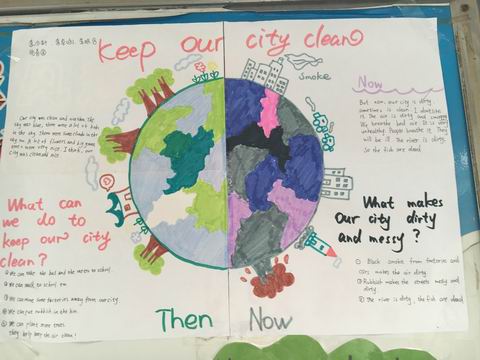 Keep our city clean
Smoke
Our city was clean and
sky was blue, there were a lot of
in the sky. There were some clouds in the
sky too. A lot of flowers and big
trees were very nice. I think, our
city was clean and nice
Now
But now, our city is dirty
The air is dirty and
We breathe bad air. It is very
unhealthy. People breathe it. They
will be ill. The river is dirty.
So the fish are dead.
What can
we do to
keep our city
clean?
① We can take the bus and the metro to school.
② We can walk to school
③ We can move some factories away from our city.
④ We can put rubbish in the bin.
⑤ We can plant more trees.
they help keep the air clean!
What makes
Our city dirty
and messy?
① Black smoke from factories and
cars makes the air dirty
② Rubbish makes the streets messy and
dirty.
③ The river is dirty, the fish are dead
Then
Now